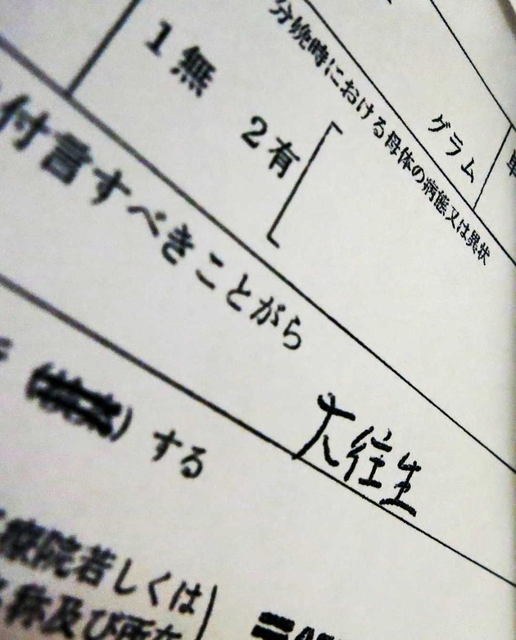 グラム
分娩時における母体の病態又は異状
1 無 2 有
付言すべきことがら
大往生
) する
療院若しくは
称及び所在